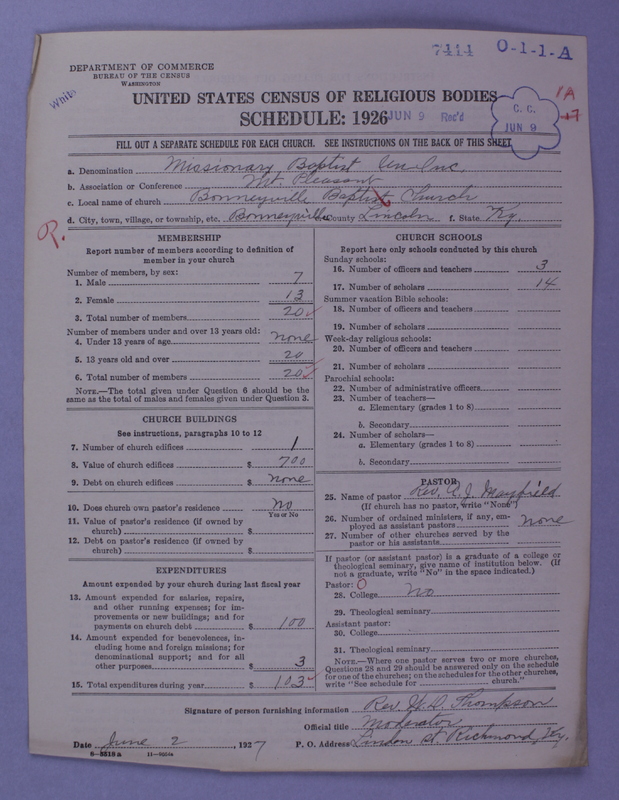 7414 O-1-1-A
DEPARTMENT OF COMMERCE
BUREAU OF THE CENSUS
WASHINGTON
White
UNITED STATES CENSUS OF RELIGIOUS BODIES
SCHEDULE: 1926
JUN 9 Rec'd
C. C.
JUN 9
1A
+7
FILL OUT A SEPARATE SCHEDULE FOR EACH CHURCH. SEE INSTRUCTIONS ON THE BACK OF THIS SHEET
a. Denomination Missionary Baptist Un. Inc.
b. Association or Conference Mt. Pleasant
c. Local name of church Bonneyville Baptist Church
d. City, town, village, or township, etc. Bonneyville County Lincoln f. State Ky.
P.
MEMBERSHIP
Report number of members according to definition of
member in your church
Number of members, by sex:
1. Male 7
2. Female 13
3. Total number of members 20
Number of members under and over 13 years old:
4. Under 13 years of age none
5. 13 years old and over 20
6. Total number of members 20
NOTE.—The total given under Question 6 should be the
same as the total of males and females given under Question 3.
CHURCH BUILDINGS
See instructions, paragraphs 10 to 12
7. Number of church edifices 1
8. Value of church edifices $ 700
9. Debt on church edifices $ none
10. Does church own pastor's residence No
Yes or No
11. Value of pastor's residence (if owned by
church) $
12. Debt on pastor's residence (if owned by
church) $
EXPENDITURES
Amount expended by your church during last fiscal year
13. Amount expended for salaries, repairs,
and other running expenses; for im-
provements or new buildings; and for
payments on church debt $ 100
14. Amount expended for benevolences, in-
cluding home and foreign missions; for
denominational support; and for all
other purposes $ 3
15. Total expenditures during year $ 103
CHURCH SCHOOLS
Report here only schools conducted by this church
Sunday schools:
16. Number of officers and teachers 3
17. Number of scholars 14
Summer vacation Bible schools:
18. Number of officers and teachers
19. Number of scholars
Week-day religious schools:
20. Number of officers and teachers
21. Number of scholars
Parochial schools:
22. Number of administrative officers
23. Number of teachers—
a. Elementary (grades 1 to 8)
b. Secondary
24. Number of scholars—
a. Elementary (grades 1 to 8)
b. Secondary
PASTOR
25. Name of pastor Rev. A. J. Mayfield
(If church has no pastor, write "None")
26. Number of ordained ministers, if any, em-
ployed as assistant pastors none
27. Number of other churches served by the
pastor or his assistants
If pastor (or assistant pastor) is a graduate of a college or
theological seminary, give name of institution below. (If
not a graduate, write "No" in the space indicated.)
Pastor: O
28. College No
29. Theological seminary
Assistant pastor:
30. College
31. Theological seminary
NOTE.—Where one pastor serves two or more churches,
Questions 28 and 29 should be answered only on the schedule
for one of the churches; on the schedules for the other churches,
write "See schedule for church."
Signature of person furnishing information Rev. H. D. Thompson
Official title Moderator
Date June 2, 1927 P. O. Address Linden St. Richmond, Ky.